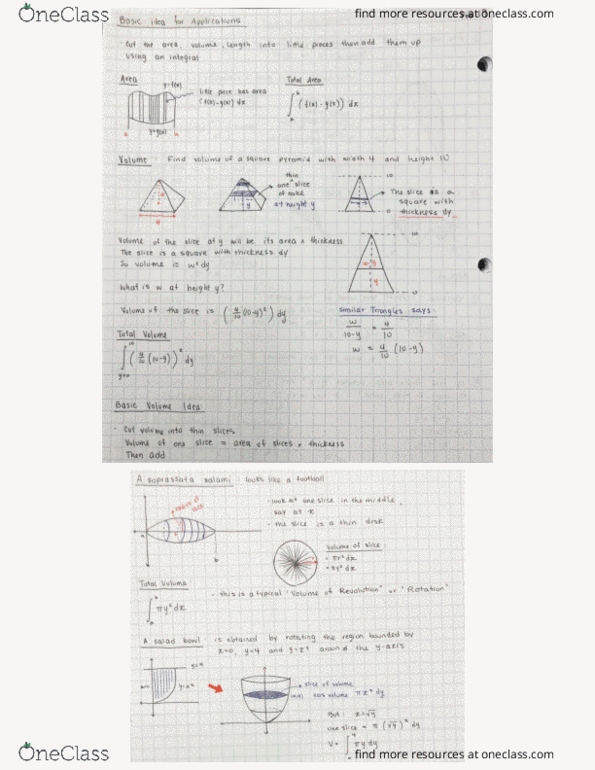 OneClass
find more resources at oneclass.com
Basic idea for Applications
- Cut the area, volume, length into little pieces then add them up
using an integral
Area
y=f(x)
little piece has area
(f(x)-g(x)) dx
y=g(x)
a
b
Total Area
∫ₐᵇ (f(x) - g(x)) dx
Volume : Find volume of a square pyramid with width 4 and height 10
thin
one slice
of width
at height y
10
0
The slice is a
square with
thickness dy
Volume of the slice at y will be its area × thickness
The slice is a square with thickness dy
So volume is w² dy
What is w at height y?
10
y
0
Volume of the slice is (4/10 (10-y)²) dy
Total Volume
10
∫ (4/10 (10-y))² dy
y=0
similar Triangles says:
w/10-y = 4/10
w = 4/10 (10-y)
Basic Volume Idea:
- Cut volume into thin slices
Volume of one slice = area of slices × thickness
Then add
A soprassata salami : looks like a football
radius of
a
b
- look at one slice in the middle,
say at x
- the slice is a thin disk
Volume of slice :
= πr² dx
= πy² dx
Total Volume
∫ₐᵇ πy² dx
- this is a typical "Volume of Revolution" or "Rotation"
A salad bowl : is obtained by rotating the region bounded by
x=0, y=4 and y=x² around the y-axis
y=4
x=0
y=x²
slice of volume
has volume πx² dy
But : x=√y
one slice = π (√y)² dy
V = ∫ πy dy
OneClass
find more resources at oneclass.com